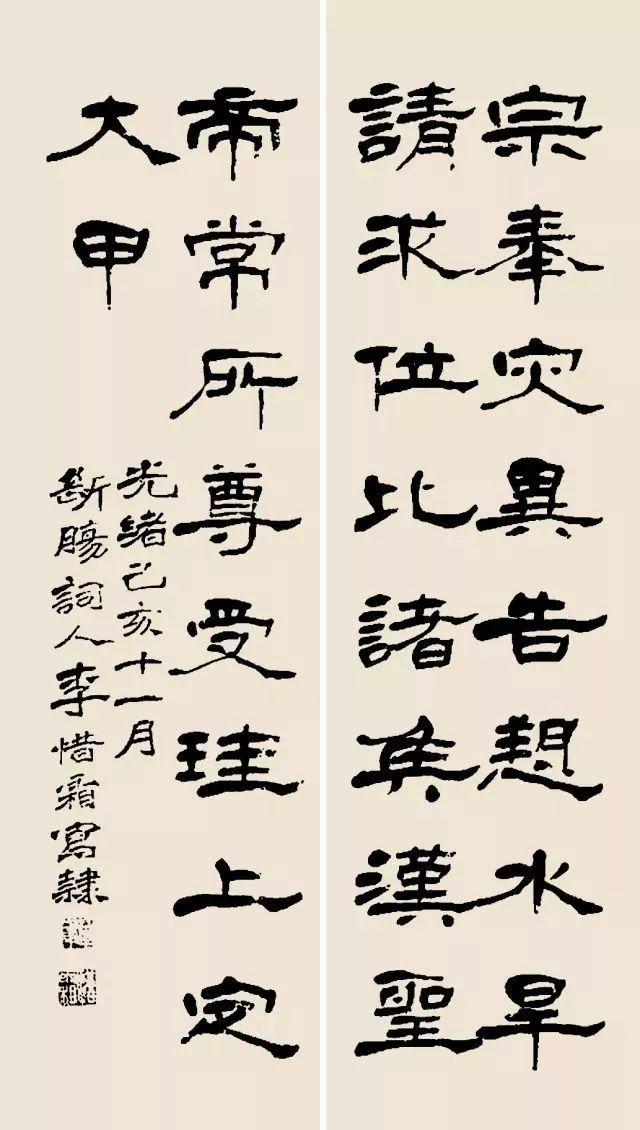 宗奉灾異告愬水旱
請求位比諸矦漢聖
帝常所尊受珪上定
大甲
光緒己亥十一月
斷腸詞人李惜霜寫隸